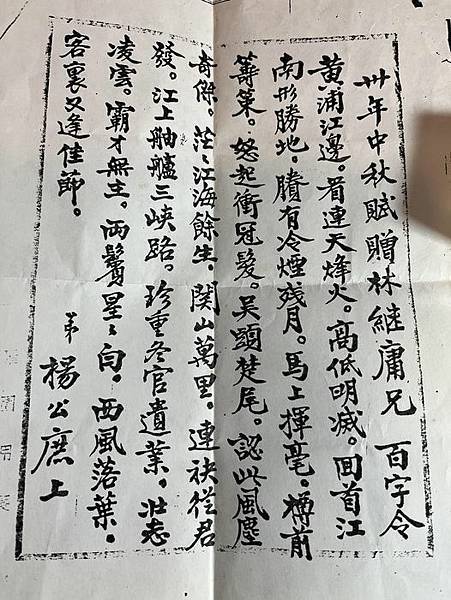 卅年中秋賦贈林継庸兄　百字令
黄浦江邊。看連天烽火。高低明滅。囬首江
南形勝地。賸有冷煙残月。馬上揮毫。樽前
籌策。怒起衝冠髮。吴頭楚尾。認此風塵
奇傑。茫〻江海餘生。関山萬里。連袂從君
發。江上舳艫三峽路。珍重冬官遺業。壮志
凌雲。霸才無主。両鬢星〻白。西風落葉。
客裏又逢佳節。
弟楊公庶上